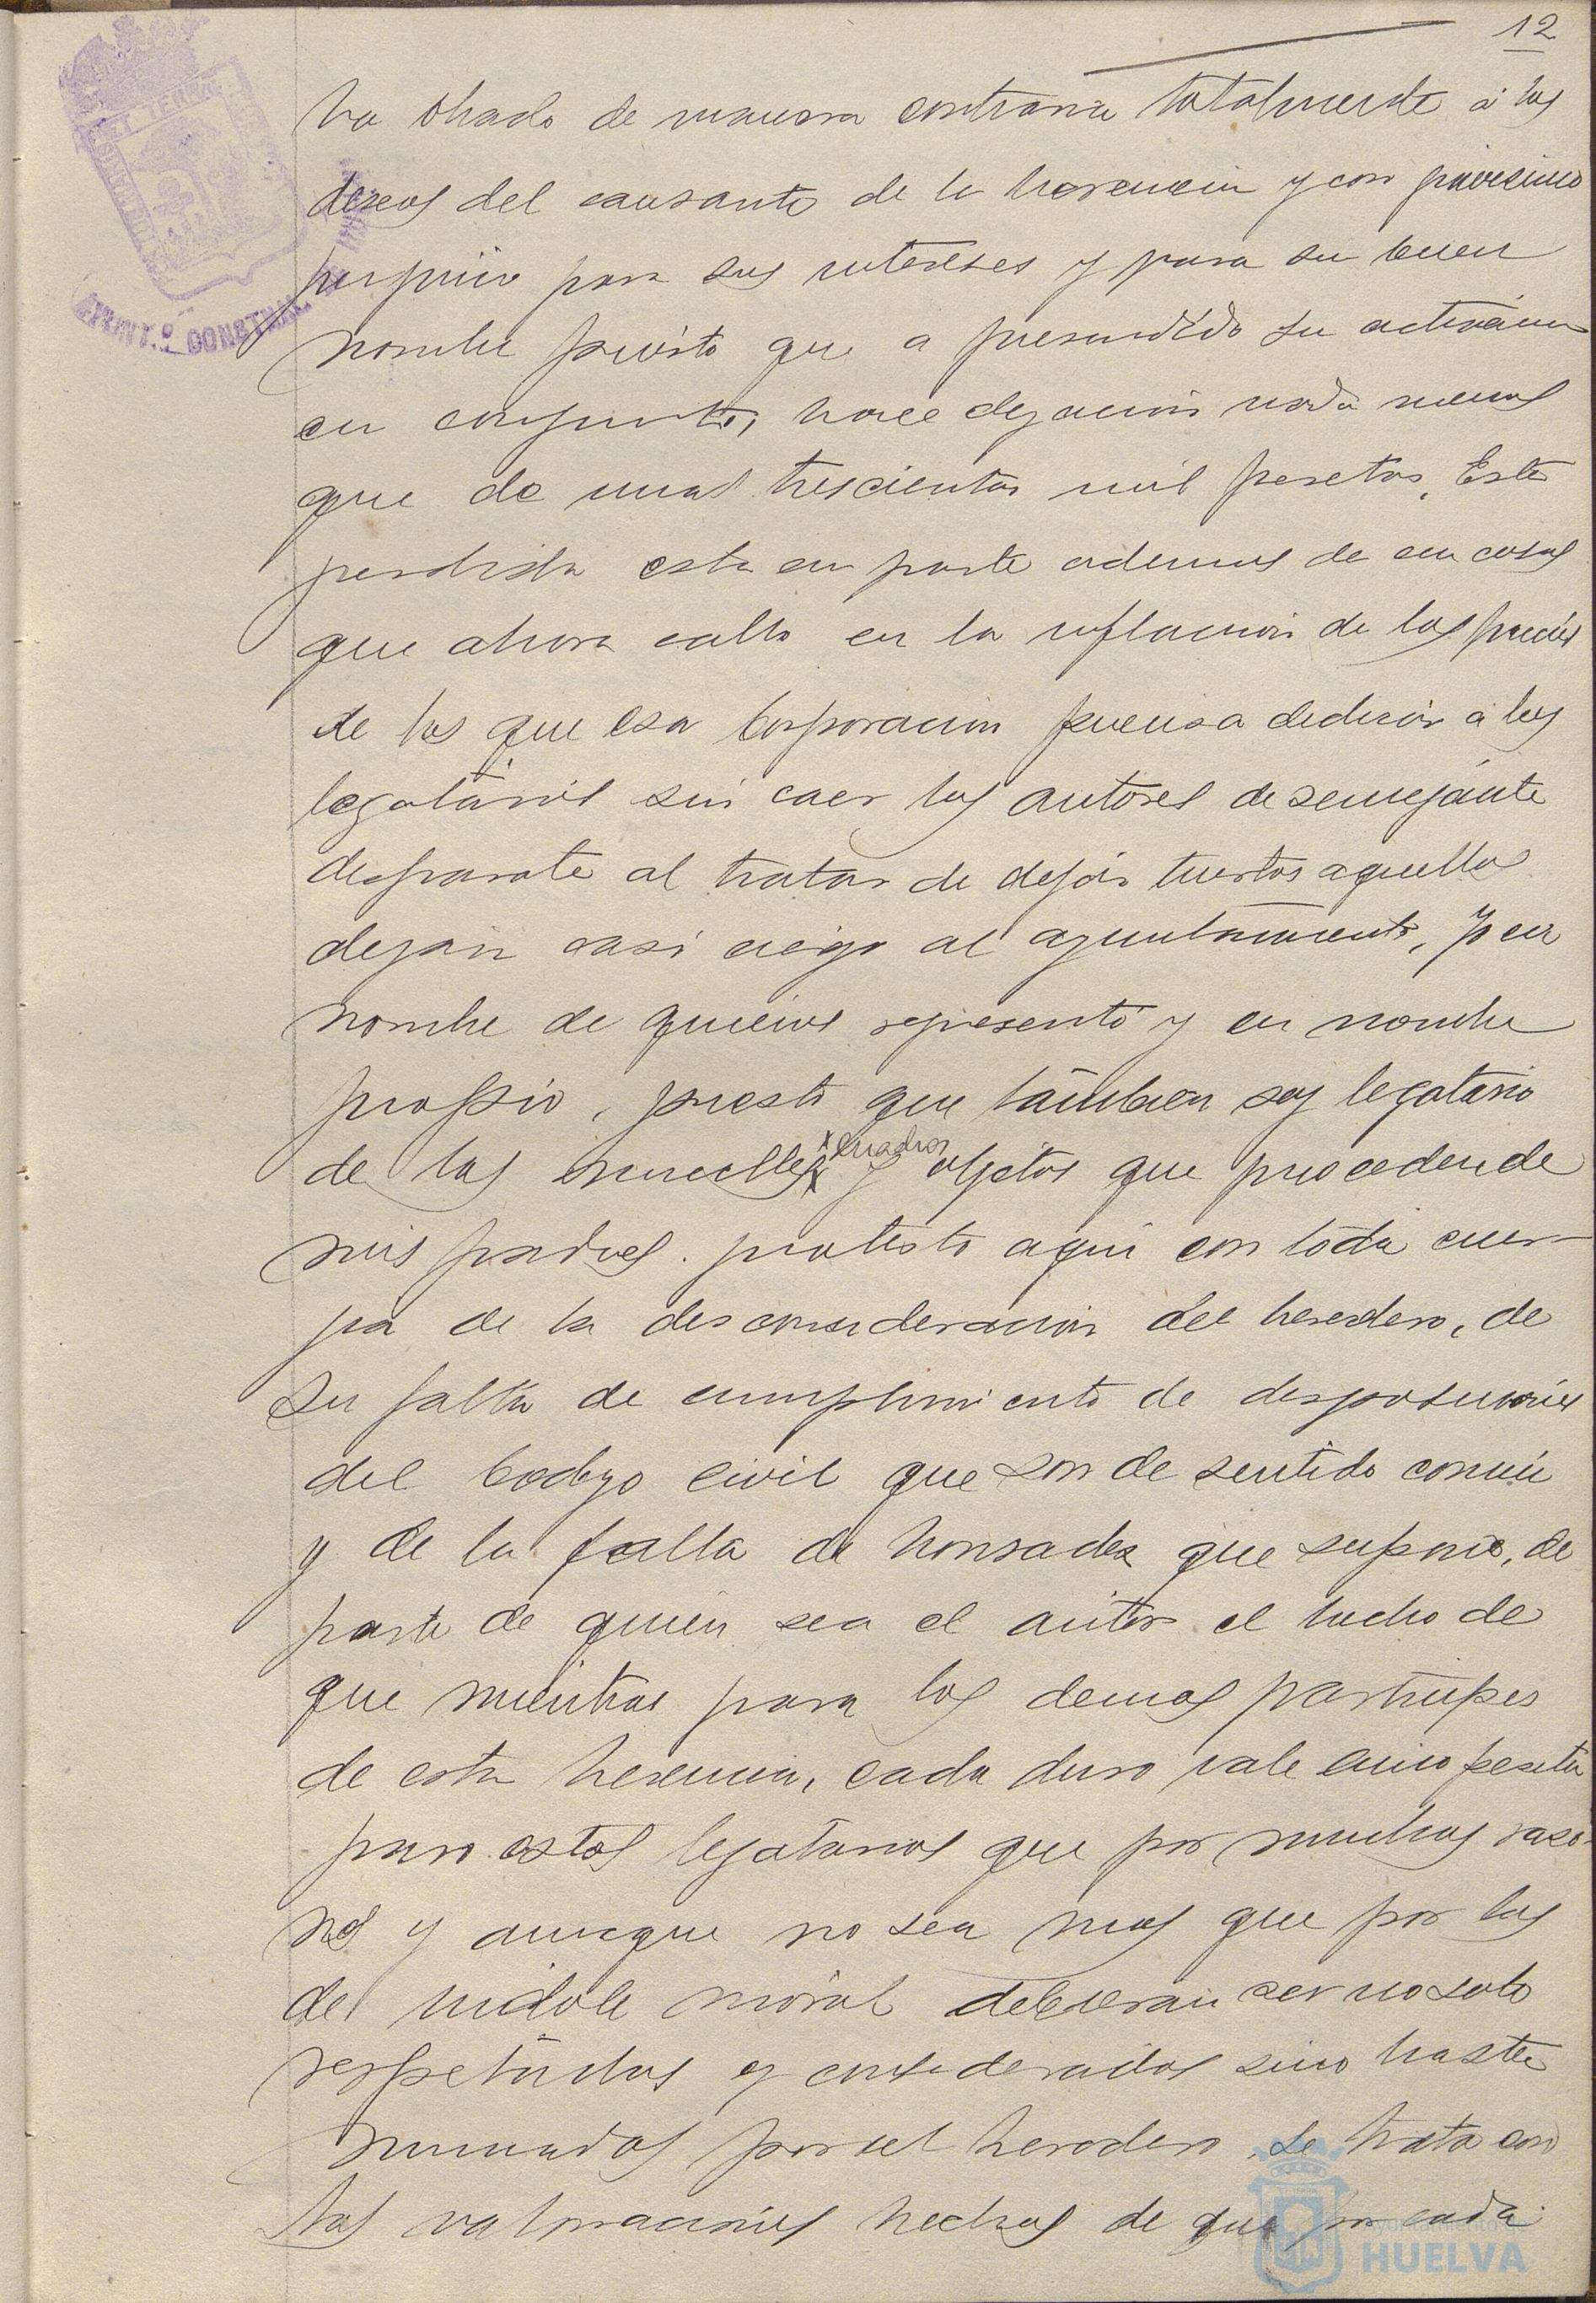 12
ha obrado de manera contraria totalmente á los
deseos del causante de la herencia y con gravisimo
perjuicio para sus intereses y para su buen
nombre puesto que a presindido su actuacion
en conjunto, hace dejacion nada menos
que de unas trescientas mil pesetas. Esta
perdida esta en parte ademas de en cosas
que ahora callo en la inflacion de los precios
de los que esa Corporacion piensa dedicar á los
legatarios sin caer los autores de semejante
disparate al tratar de dejar tuertos aquellos
dejan casi ciego al ayuntamiento. Yo en
nombre de quienes represento y en nombre
propio, puesto que tambien soy legatario
de los muebles cuadros y objetos que proceden de
mis padres. protesto aqui con toda ener-
gia de la desconsideracion del heredero, de
su falta de cumplimiento de disposiciones
del Codigo civil que son de sentido comun
y de la falta de honradez que supone, de
parte de quien sea el autor el hecho de
que mientras para los demas participes
de esta herencia, cada duro vale cinco pesetas
para estos legatarios que por muchas razo-
nes y aunque no sea mas que por las
de indole moral debieran ser no solo
respetados y considerados sino hasta
mimados por el heredero se trata con
las valoraciones hechas de que por cada
AYUNT.º CONSTNAL
Ayuntamiento
HUELVA